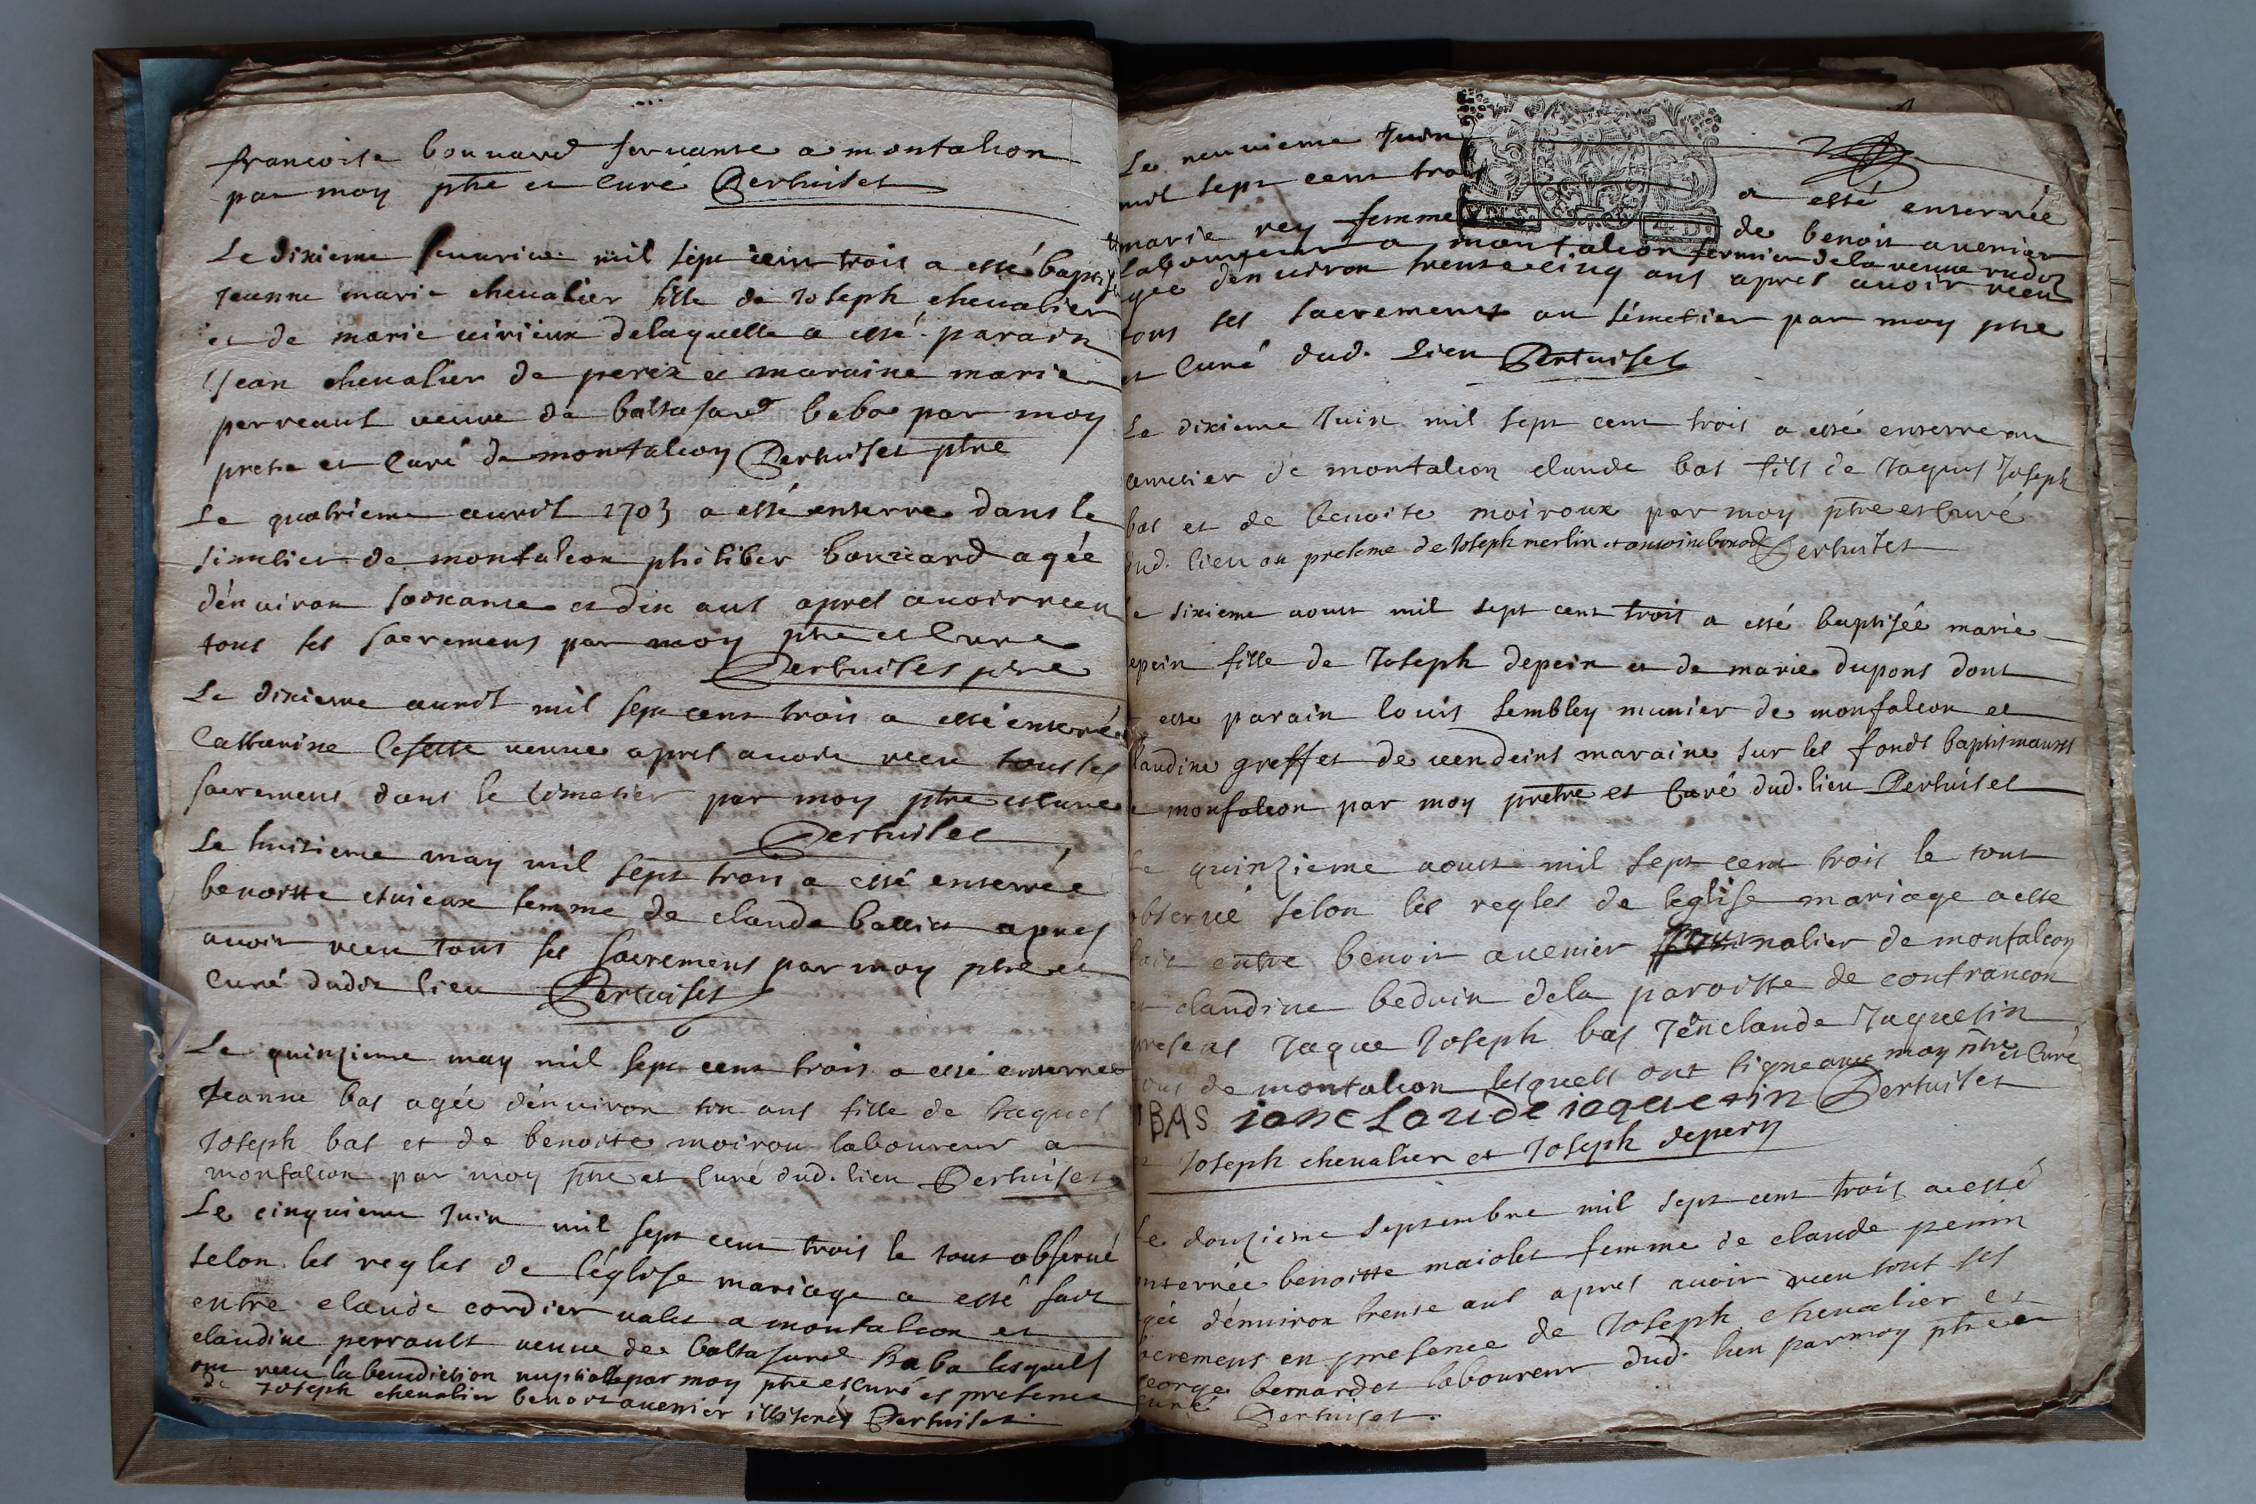 francoise bouuard seruante a montalcon
par moy ptre et Curé Pertuiset
Le dixieme feuurier mil sept cent trois a essé baptisé
Jeanne marie cheualier fille de Joseph cheualier
et de marie uirieux delaquelle a essé parain
Jean cheualier de perex et maraine marie
perreaut ueuue de baltasard baba par moy
pretre et Curé de montalcon Pertuiset ptre
Le quatrieme auril 1703 a essé enterre dans le
simetier de montalcon philiber bouuard agée
dénuiron soixante et dix ans apres auoir receu
tous ses sacremens par moy ptre et Cure
Pertuiset ptre
Le dixieme auril mil sept cent trois a essé enterré
Catharine ueuue apres auoir receu tous ses
sacremens dans le simetier par moy ptre et Curé
Pertuiset
Le huitieme may mil sept trois a essé enterrée
benoitte femme de claude apres
auoir receu tous ses sacremens par moy ptre et
Curé dudit lieu Pertuiset
Le quinzieme may mil sept cent trois a essé enterrée
Jeanne bas agée dénuiron ans fille de Jaques
Joseph bas et de benoite moirou laboureur a
montfalcon par moy ptre et Curé dud. lieu Pertuiset
Le cinquieme Juin mil sept cent trois le tout obserué
selon les regles de l'église mariage a essé fait
entre claude cordier ualet a montalcon et
claudine perrault ueuue de baltasard Baba lesquels
ont receu la benediction nuptialle par moy ptre et curé et presence
de Joseph cheualier benoit auenier illiterés Pertuiset
Le neuuieme Juin
mil sept cent trois a essé enterrée
marie rey femme de benoit auenier
Laboureur a montfalcon fermier de la ueuue
gée dénuiron trente cinq ans apres auoir receu
tous ses sacremens au simetier par moy ptre
et Curé dud. Lieu Pertuiset
Le dixieme Juin mil sept cent trois a essé enterre au
simetier de montalcon claude bas fils de Jaques Joseph
bas et de benoite moiroux par moy ptre et Curé
dud. lieu en presence de Joseph merlin et Pertuiset
Le sixieme aoust mil sept cent trois a essé baptisée marie
depein fille de Joseph depein et de marie dupons dont
a esse parain louis sembley munier de monfalcon et
claudine greffet de uendeins maraine sur les fonds baptismaux
de monfalcon par moy pretre et Curé dud. lieu Pertuiset
Le quinzieme aoust mil sept cent trois le tout
obserué selon les regles de leglise mariage a esse
fait entre benoit auenier de monfalcon
et claudine beduin dela paroisse de confrancon
presens Jaque Joseph bas Jean claude Jaquesin
tous de montalcon lesquels ont signe auec moy ptre et Curé
IBAS ianclaude iaquesin Pertuiset
et Joseph cheualier et Joseph depery
Le douzieme septembre mil sept cent trois a essé
enterrée benoitte maiolet femme de claude perrin
agée dénuiron trente ans apres auoir receu tous ses
sacremens en presence de Joseph cheualier et
george bernardet laboureur dud. lieu par moy ptre et
curé Pertuiset.